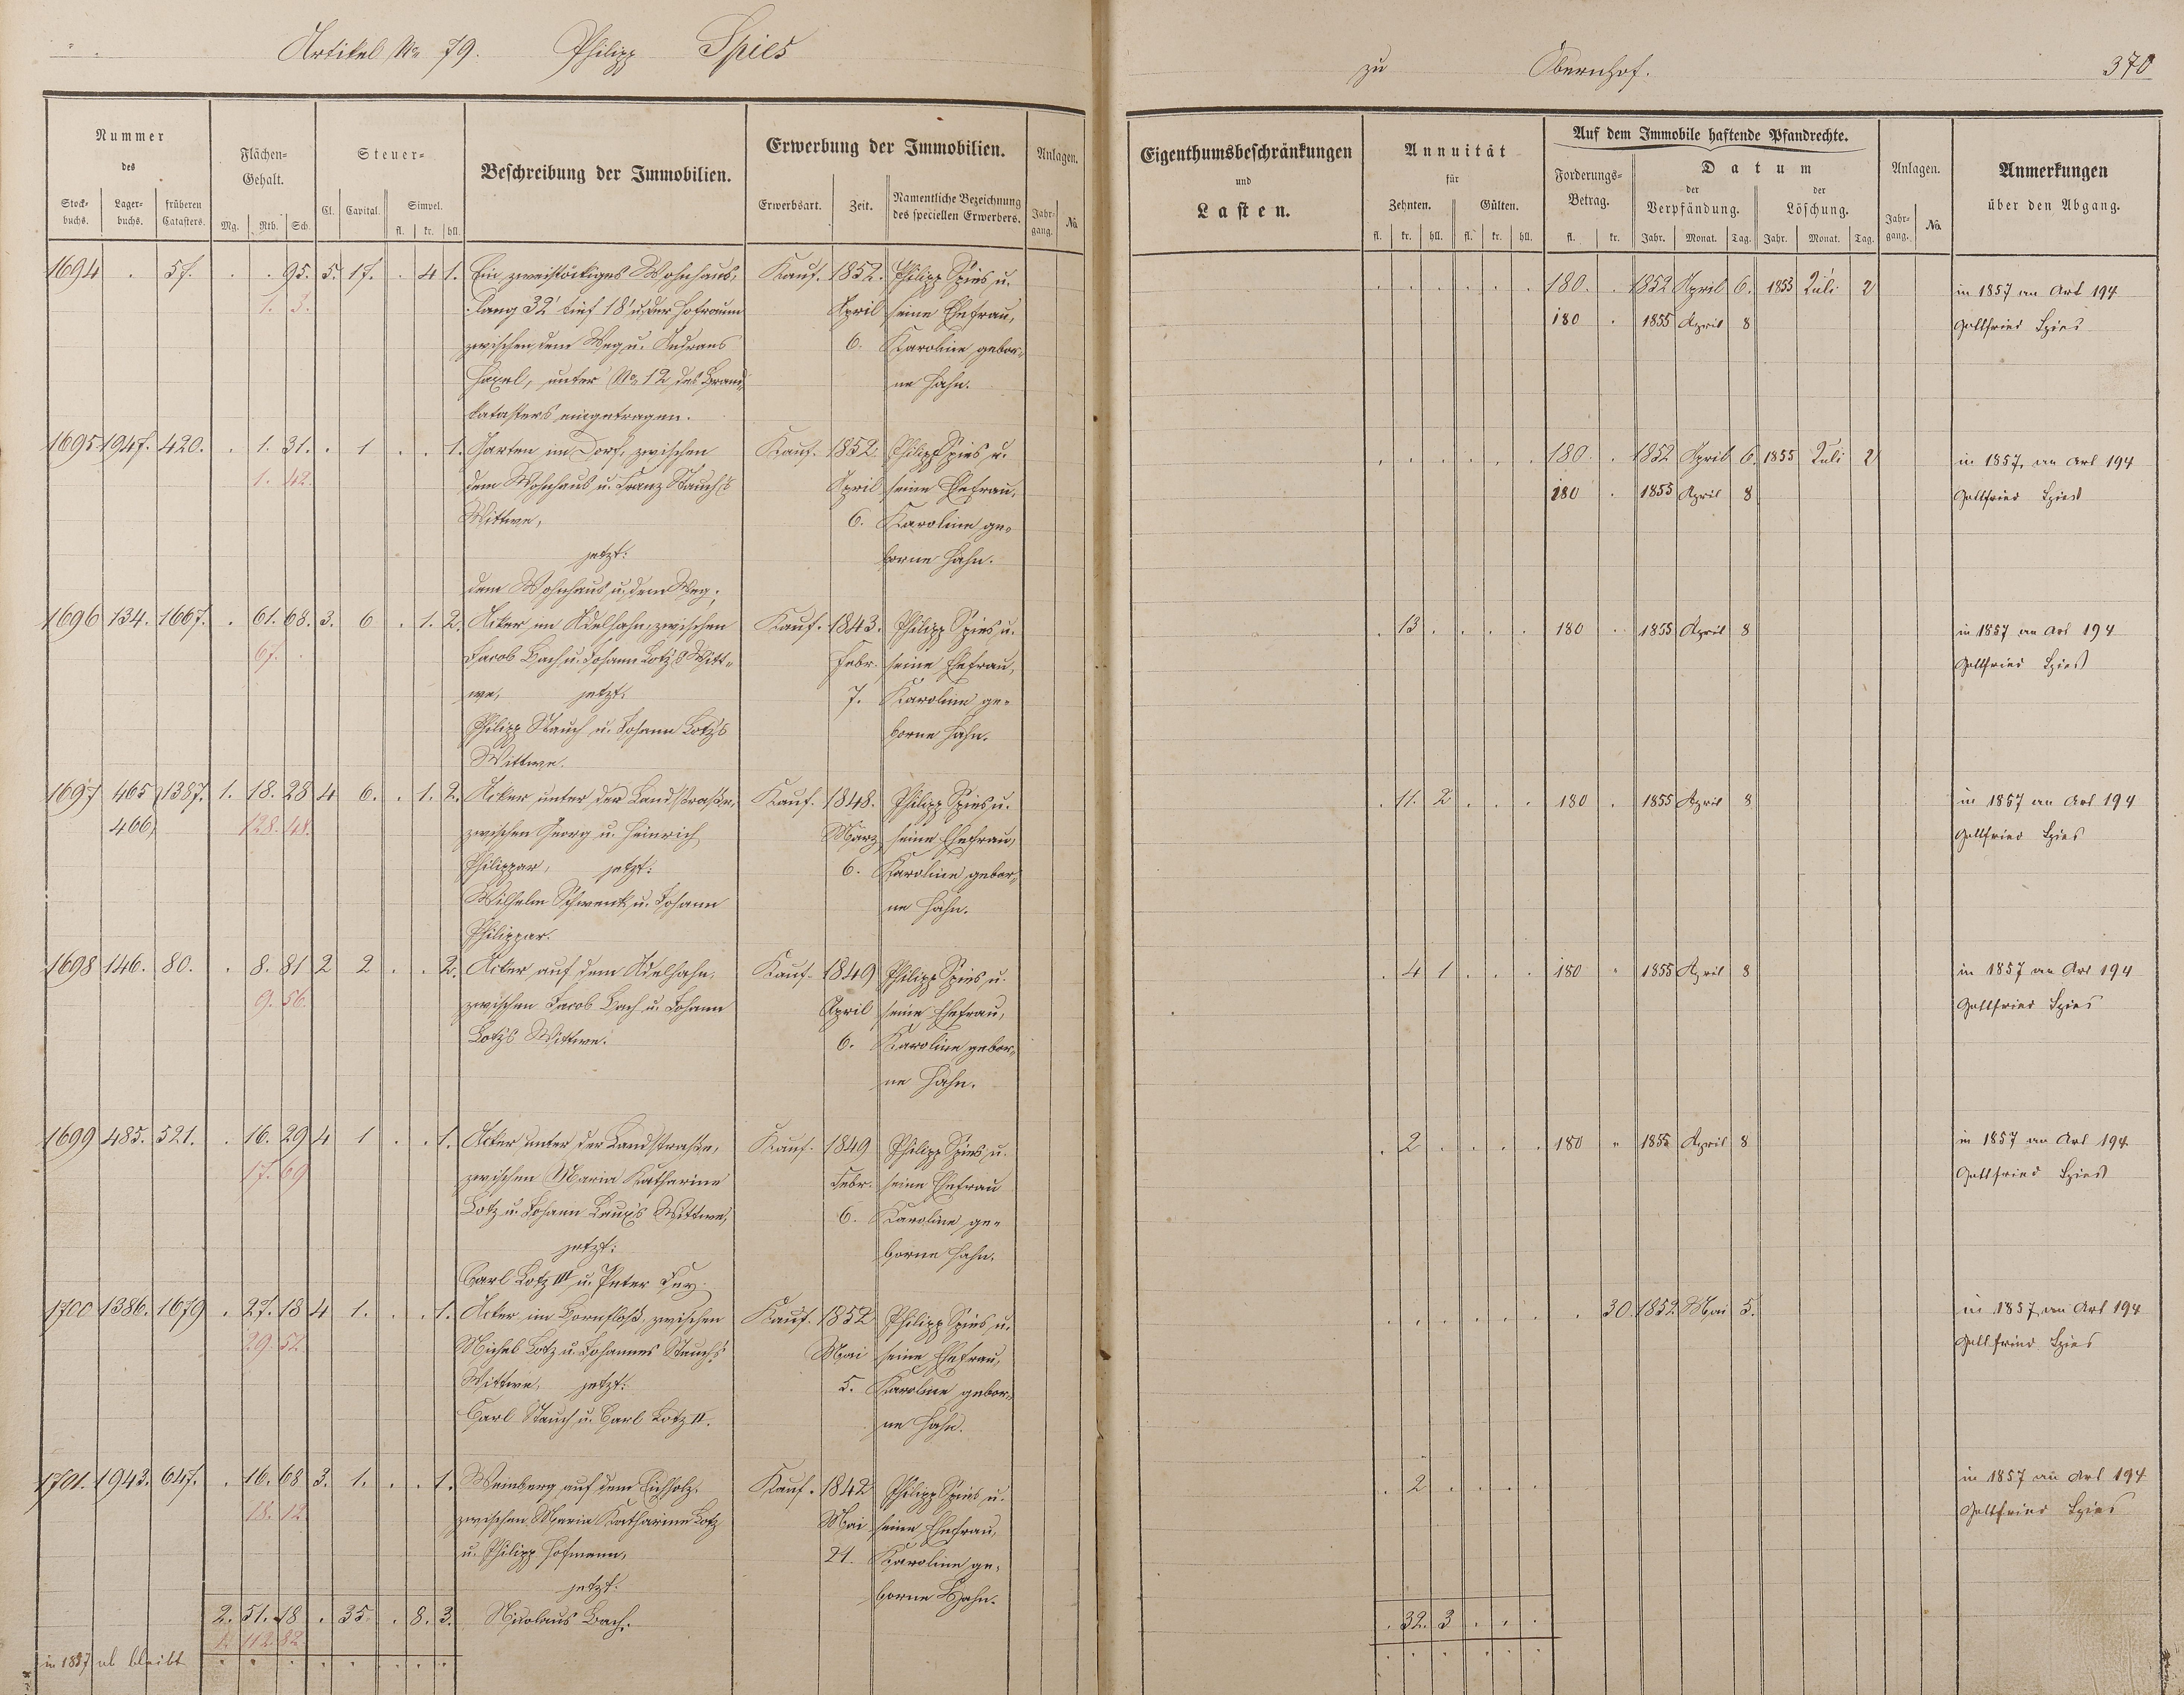 Artikel No 79. Philipp Spies
zu Obernhof. 370
Nummer des
Stockbuchs. Lagerbuchs. früheren Catasters.
Flächen-Gehalt.
Mg. Rth. Sch.
Steuer-
Cl. Capital. Simpel.
fl. kr. hll.
Beschreibung der Immobilien.
Erwerbung der Immobilien.
Erwerbsart. Zeit. Namentliche Bezeichnung des speciellen Erwerbers.
Anlagen.
Jahrgang. No
Eigenthumsbeschränkungen
und
Lasten.
Annuität
für
Zehnten. Gülten.
fl. kr. hll. fl. kr. hll.
Auf dem Immobile haftende Pfandrechte.
Forderungs-Betrag.
fl. kr.
Datum
der Verpfändung. der Löschung.
Jahr. Monat. Tag. Jahr. Monat. Tag.
Anlagen.
Jahrgang. No
Anmerkungen
über den Abgang.
1694 . 57. . . 95. 5. 17. . 4 1. Ein zweistöckiges Wohnhaus, Kauf. 1852. Philipp Spies u. 180. . 1852 April 6. 1855 Juli 2 in 1857 an Art 194
1. 3. lang 32' tief 18' u. der Hofraum April seine Ehefrau, 180 . 1855 April 8 Gottfried Spies
zwischen dem Weg u. Andreas 6. Karoline gebor-
Haxel, unter No 12 des Brand- ne Hahn.
katasters eingetragen.
1695 1947. 420. . 1. 31. . 1 . . 1. Garten im Dorf, zwischen Kauf. 1852 Philipp Spies u. 180. . 1852 April 6. 1855 Juli 2 in 1857, an Art 194
1. 42. dem Wohnhaus u. Franz Stauch's April seine Ehefrau, 180 . 1855 April 8 Gottfried Spies
Wittwe, 6. Karoline ge-
jetzt: borne Hahn.
dem Wohnhaus u. dem Weg.
1696 134. 1667. . 61. 68. 3. 6 . 1. 2. Acker im Adelhahn, zwischen Kauf. 1843. Philipp Spies u. . 13 . . . . 180 . 1855 April 8 in 1857 an Art 194
67. . Jacob Bach u. Johann Lotz's Witt- Febr. seine Ehefrau, Gottfried Spies
we, jetzt: 7. Karoline ge-
Philipp Stauch u. Johann Lotz's borne Hahn.
Wittwe.
1697 465 1387. 1. 18. 28 4 6. . 1. 2. Acker unter der Landstraße, Kauf. 1848. Philipp Spies u. . 11. 2 . . . 180 . 1855 April 8 in 1857 an Art 194
466 128. 48. zwischen Georg u. Heinrich März seine Ehefrau, Gottfried Spies
Philippar, jetzt: 6. Karoline gebor-
Wilhelm Schwenk u. Johann ne Hahn.
Philippar.
1698 146. 80. . 8. 81 2 2 . . 2. Acker auf dem Adelhahn, Kauf. 1849 Philipp Spies u. . 4 1 . . . 180 . 1855 April 8 in 1857 an Art 194
9. 56. zwischen Jacob Bach u. Johann April seine Ehefrau, Gottfried Spies
Lotz's Wittwe. 6. Karoline gebor-
ne Hahn.
1699 485. 521. . 16. 29 4 1 . . 1. Acker unter der Landstraße, Kauf. 1849 Philipp Spies u. . 2 . . . . 180 " 1855 April 8 in 1857 an Art 194
17. 69 zwischen Maria Katharine Febr. seine Ehefrau Gottfried Spies
Lotz u. Johann Laux's Wittwe, 6. Karoline ge-
jetzt: borne Hahn.
Carl Lotz III u. Peter
1700 1386. 1679 . 27. 18 4 1. . . 1. Acker im zwischen Kauf. 1852 Philipp Spies u. . . . . . . . 30. 1852 Mai 5. in 1857, an Art 194
29. 52 Michel Lotz u. Johannes Stauch's Mai seine Ehefrau, Gottfried Spies
Wittwe, jetzt: 5. Karoline gebor-
Carl Stauch u. Carl Lotz II. ne Hahn.
1701. 1943. 647. . 16. 68 3. 1. . . 1. Weinberg auf dem Eichholz, Kauf. 1842 Philipp Spies u. . 2 . . . . in 1857 an Art 194
18. 12 zwischen Maria Katharine Lotz Mai seine Ehefrau, Gottfried Spies
u. Philipp Hofmann, 21. Karoline ge-
jetzt: borne Hahn.
2. 51. 18 . 35. . 8. 3. Nicolaus Bach. . 32. 3 . . .
2 112 82
in 1857 ab bleibt . . . . . . . .